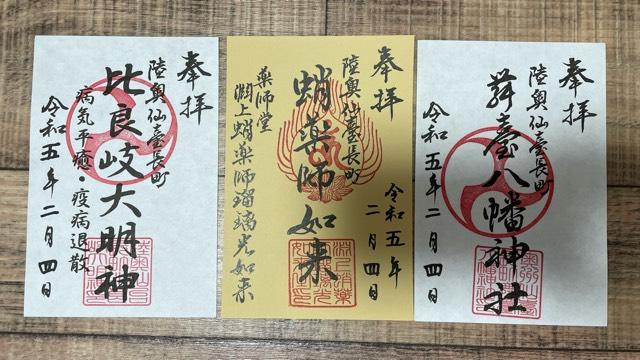 奉拝
陸奥仙臺長町
比良岐大明神
病気平癒・疫病退散
令和五年二月四日
奉拝
陸奥仙臺長町
蛸薬師如来
薬師堂
渕上蛸薬師瑠璃光如来
令和五年
二月四日
奉拝
陸奥仙臺長町
舞臺八幡神社
令和五年二月四日